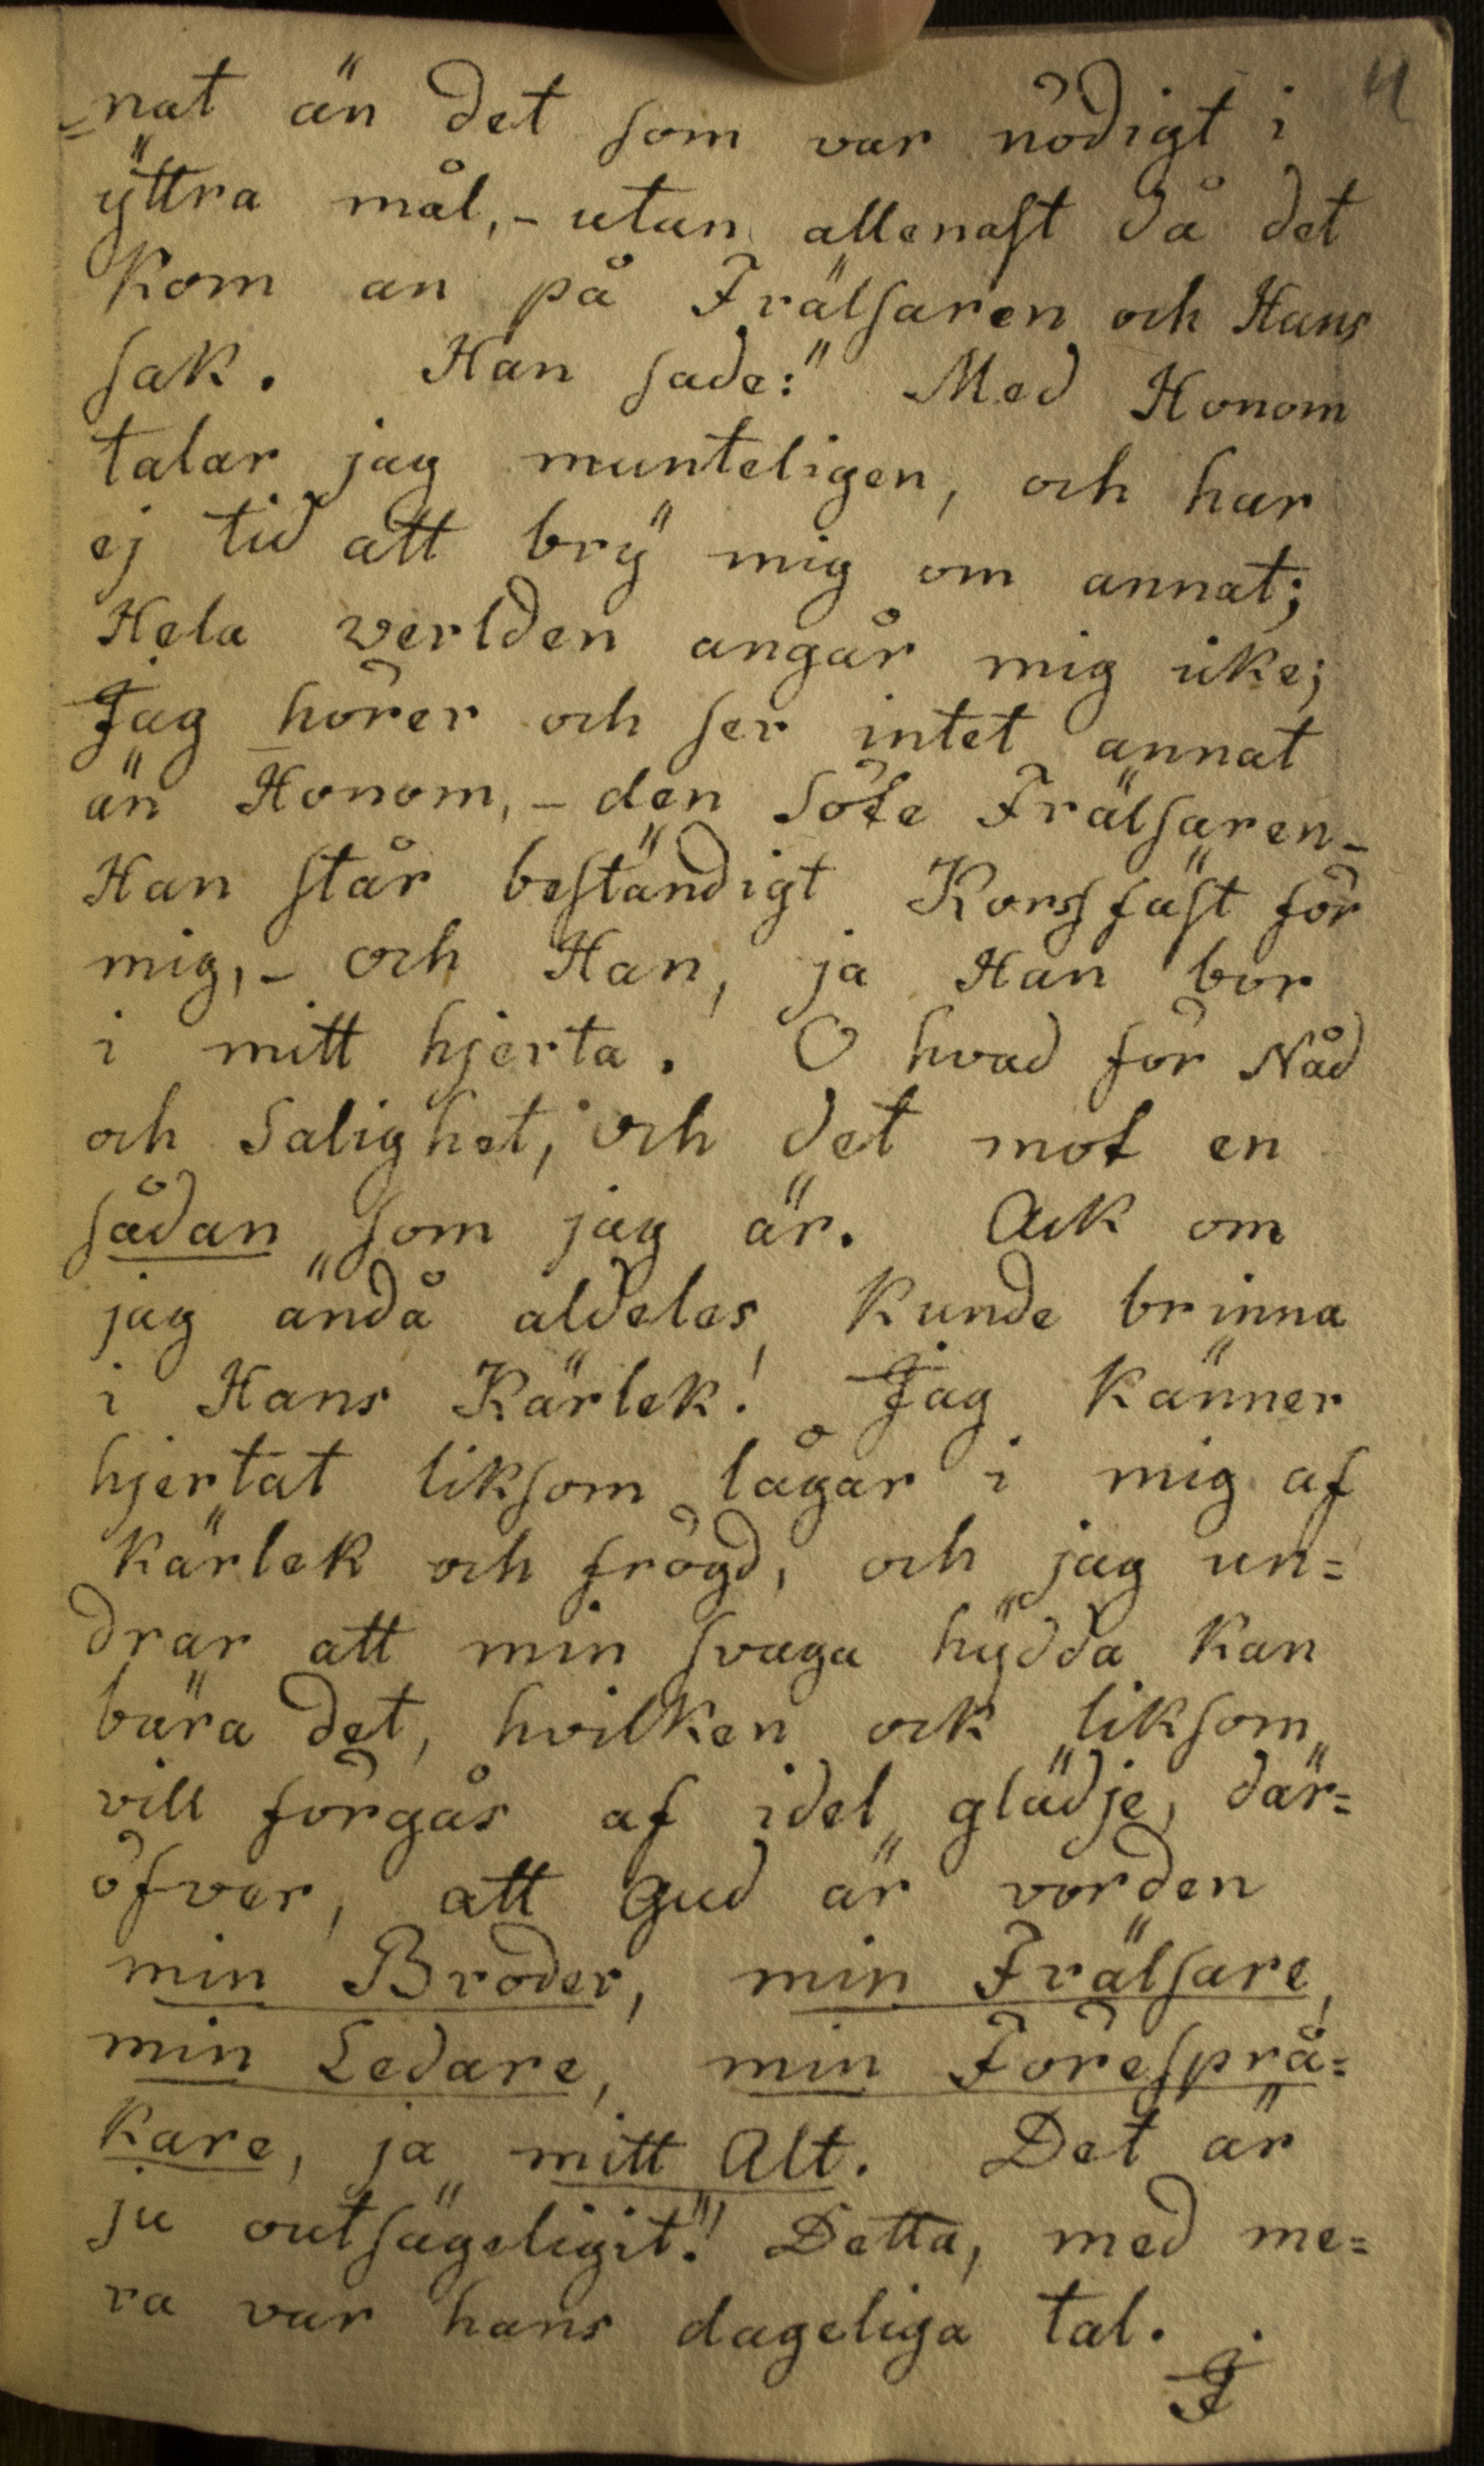 =nat än det som var nödigt i 4
ÿttra mål,- utan allenast då det
Kom an på Frälsaren och Hans
sak. Han sade:" Med Honom
talar jag munteligen, och har
ej tid att brÿ mig om annat;
Hela verlden angår mig icke;
Jag hörer och ser intet annat
än Honom, - den Söte Frälsaren-
Han står beständigt Korssfäst för
mig, - och Han, ja Han bor
i mitt hjerta. O hvad för Nåd
och Salighet, och det mot en
sådan som jag är. Ack om
jag ändå aldeles Kunde brinna
i Hans Kärlek! Jag Känner
hjertat liksom lågar i mig af
Kärlek och frögd, och jag un=
drar att min svaga hÿdda Kan
bära det, hvilken ock liksom
vill förgås af idel glädje, där=
öfver, att Gud är vorden
min Broder, min Frälsare,
min Ledare, min Föresprå=
Kare, ja mitt Alt. Det är
ju outsägeligit!" Detta, med me=
ra var hans dageliga tal.
J